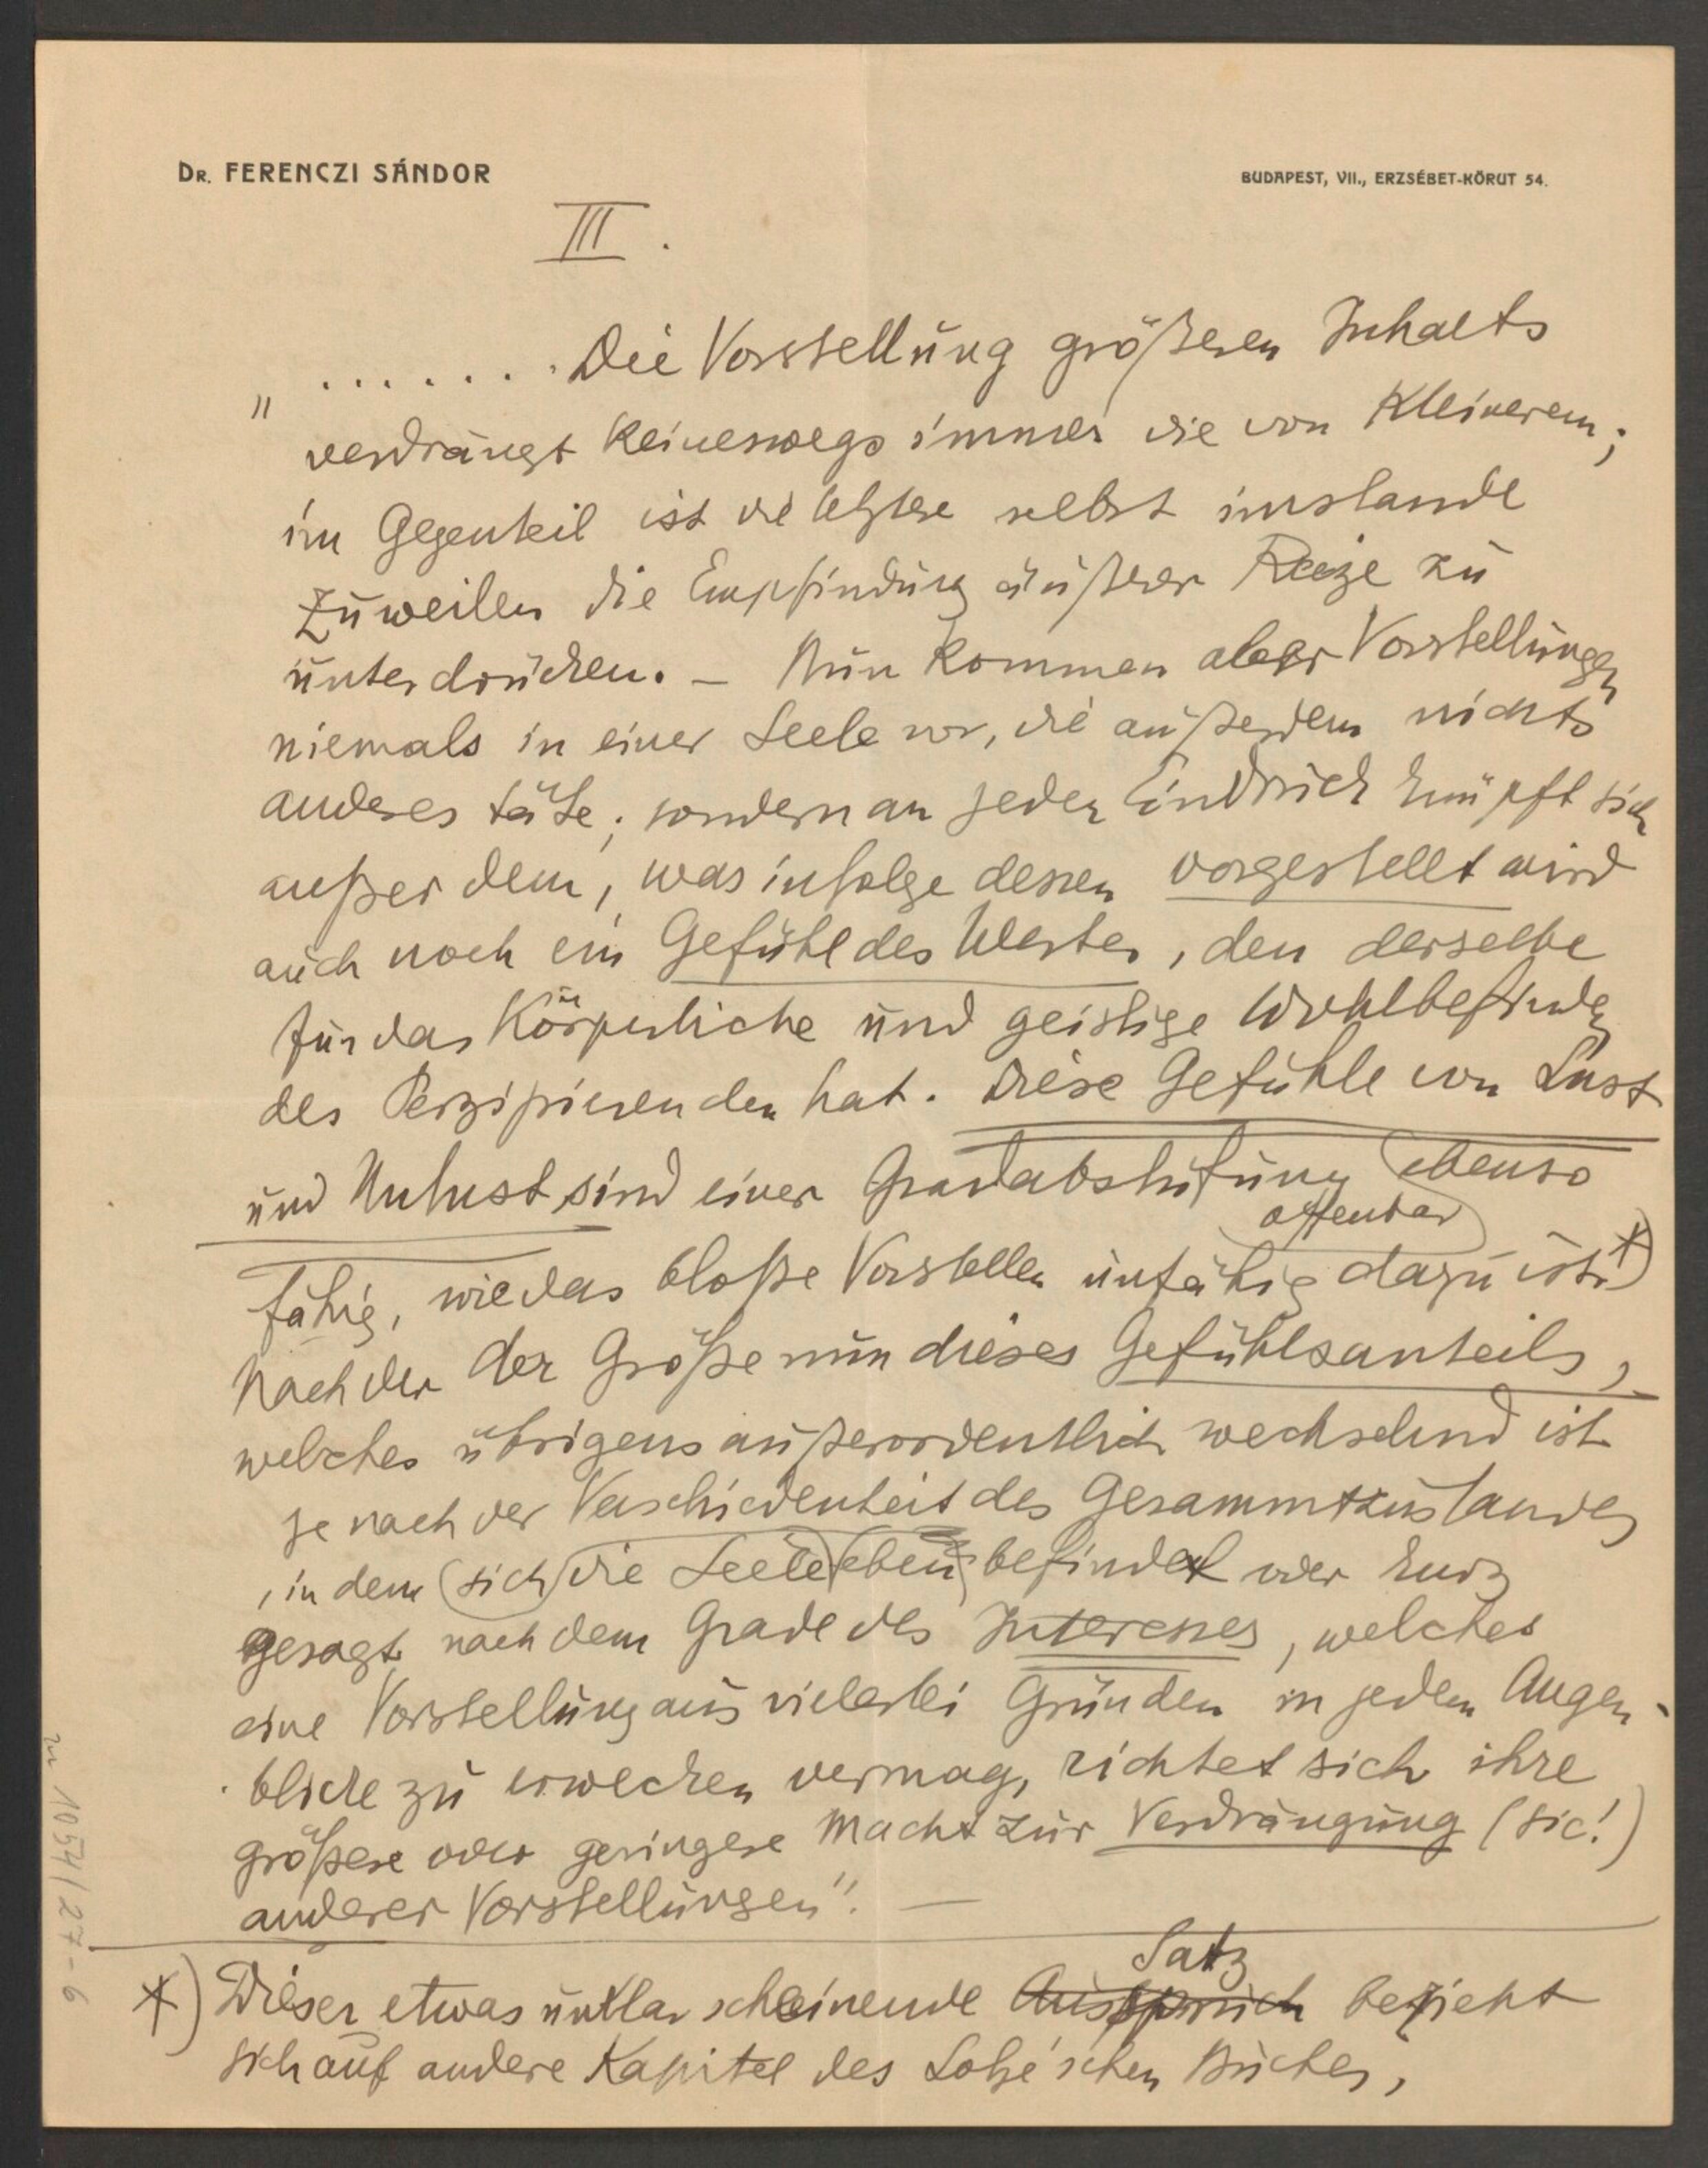 Dr. FERENCZI SÁNDOR
BUDAPEST, VII., ERZSÉBET-KÖRUT 54.
III.
„ ....... Die Vorstellung größeren Inhalts
verdrängt keineswegs immer die von Kleinerem;
im Gegenteil ist die letztere selbst imstande
zuweilen die Empfindung äußerer Reize zu
unterdrücken. – Nun kommen aber Vorstellungen
niemals in einer Seele vor, die außerdem nichts
anderes täte; sondern an jeden Eindruck knüpft sich
außer dem, was infolge dessen vorgestellt wird
auch noch ein Gefühl des Wertes, den derselbe
für das Körperliche und geistige Wohlbefinden
des Perzipierenden hat. Diese Gefühle von Lust
und Unlust sind einer Gradabstufung ebenso
offenbar
fähig, wie das bloße Vorstellen unfähig dazu ist. *)
Nach der der Größe nun dieses Gefühlsanteils,
welches übrigens außerordentlich wechselnd ist
je nach der Verschiedenheit des Gesammtzustandes
, in dem sich die Seele eben befindet oder kurz
gesagt nach dem Grade des Interesses, welches
eine Vorstellung aus vielerlei Gründen in jedem Augen-
blicke zu erwecken vermag, richtet sich ihre
größere oder geringere Macht zur Verdrängung (sic!)
anderer Vorstellungen“. —
Satz
*) Dieser etwas unklar scheinende Ausspruch bezieht
sich auf andere Kapitel des Lotze'schen Buches,
zu 1054/27-6